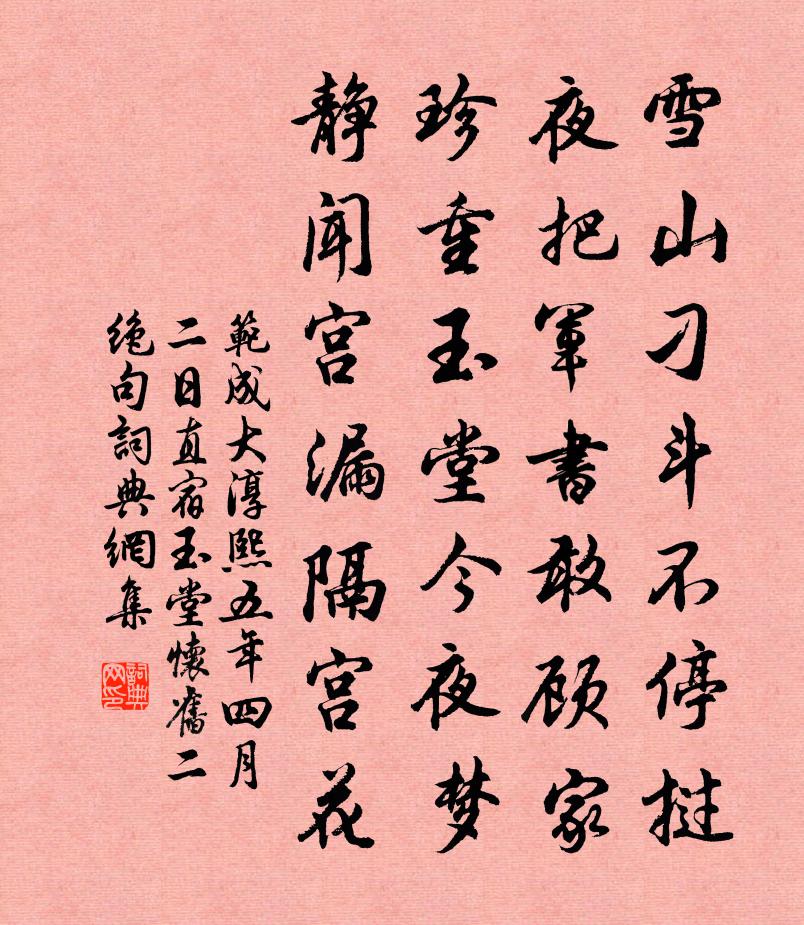 雪山刁斗不停挝
夜把军書敢顾家
珍重玉堂今夜梦
静闻宫漏隔宫花
範成大淳熙五年四月
二日直宿玉堂懷舊二
绝句詞典網集